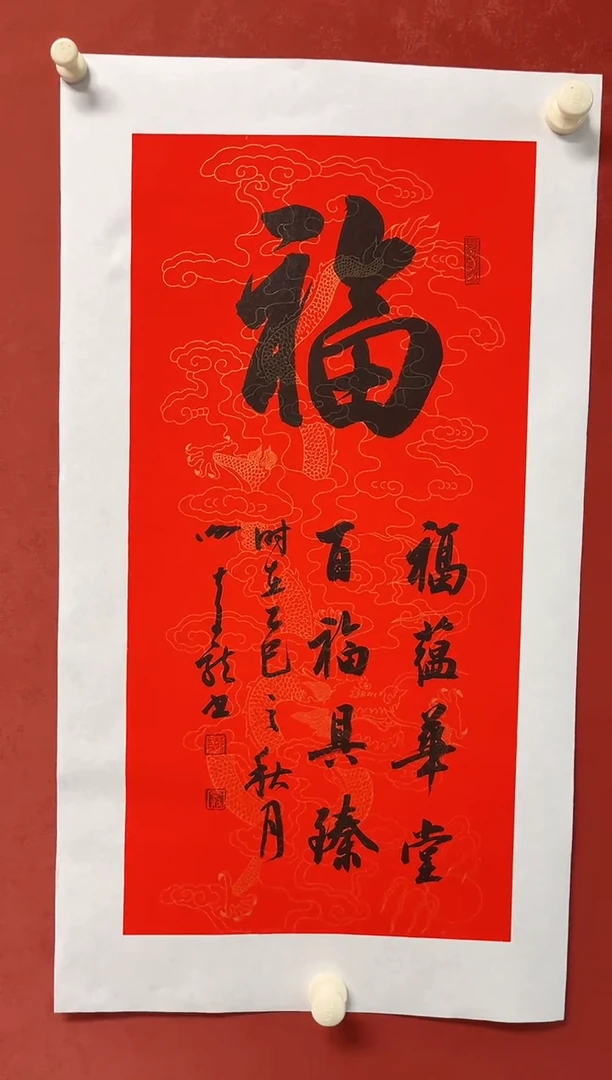 福
福蕴華堂
百福具臻
时在乙巳之秋月
书